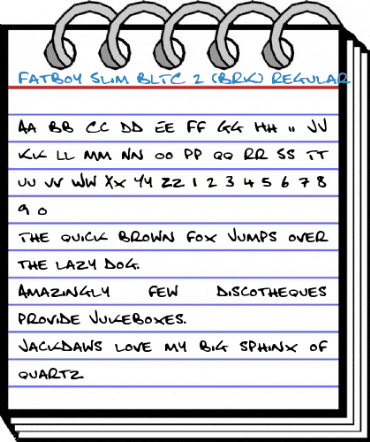 FATBOY SLIM BLTC 2 (BRK) REGULAR
AA BB CC DD EE FF GG HH II JJ
KK LL MM NN OO PP QQ RR SS TT
UU VV WW XX YY ZZ 1 2 3 4 5 6 7 8
9 0
THE QUICK BROWN FOX JUMPS OVER
THE LAZY DOG.
AMAZINGLY FEW DISCOTHEQUES
PROVIDE JUKEBOXES.
JACKDAWS LOVE MY BIG SPHINX OF
QUARTZ